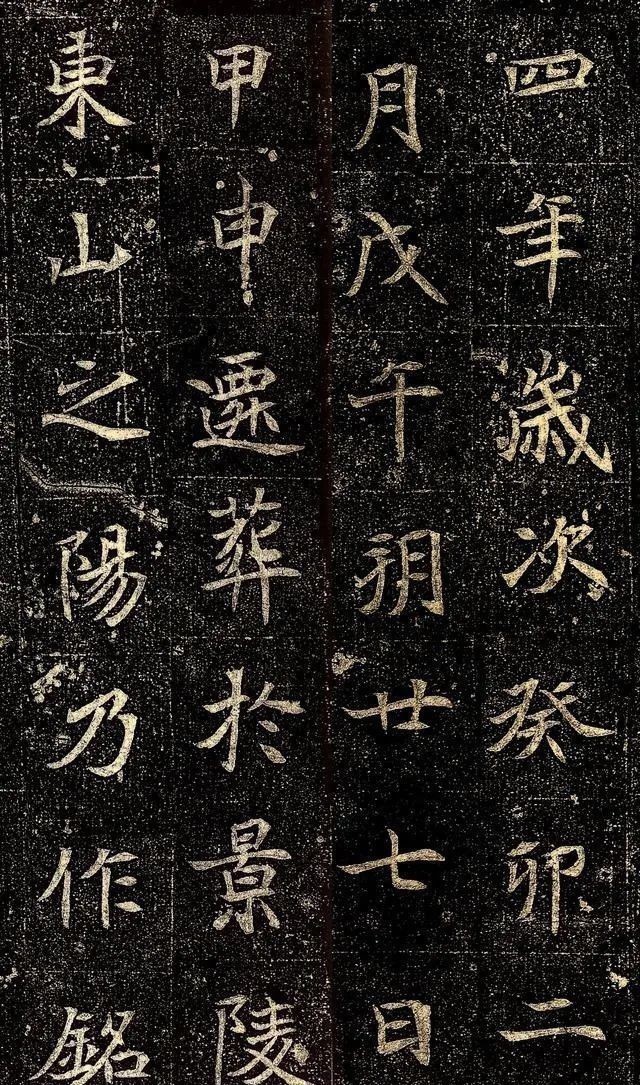 四年歲次癸卯二
月戊午朔廿七日
甲申遷葬於景陵
東山之陽乃作銘